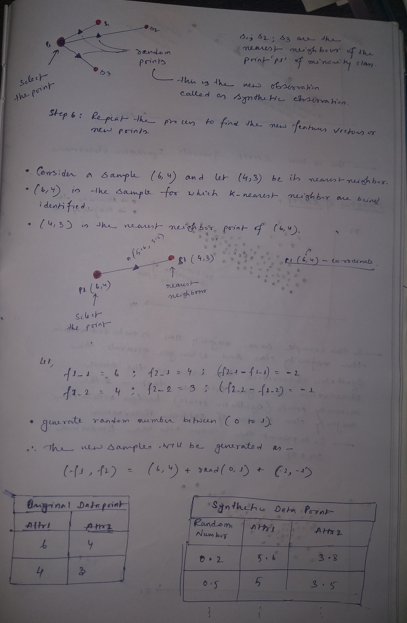 s1, s2, s3 are the
nearest neighbour of the
point 'p1' of minority class
random
points
s3
select
the point
this is the new observation
called as synthetic observation
Step 6: Repeat the process to find the new features vectors or
new points.
• Consider a sample (6,4) and let (4,3) be its nearest neighbor.
• (6,4) is the sample for which K-nearest neighbor are being
identified.
• (4,3) is the nearest neighbor point of (6,4).
s1 (4,3)
p1 (6,4)
nearest
neighbour
select
the point
let,
f1_1 = 6 ; f2_1 = 4 ; (f2_1 - f1_1) = -2
f1_2 = 4 ; f2_2 = 3 ; (f2_2 - f1_2) = -1
• generate random number between (0 to 1)
∴ The new samples will be generated as -
(f1, f2) = (6,4) + rand(0,1) * (-1)
Original Datapoint
Attr1 Attr2
6 4
4 3
Synthetic Data Point
Random Number Attr1 Attr2
0.2 5.6 3.8
0.5 5 3.5